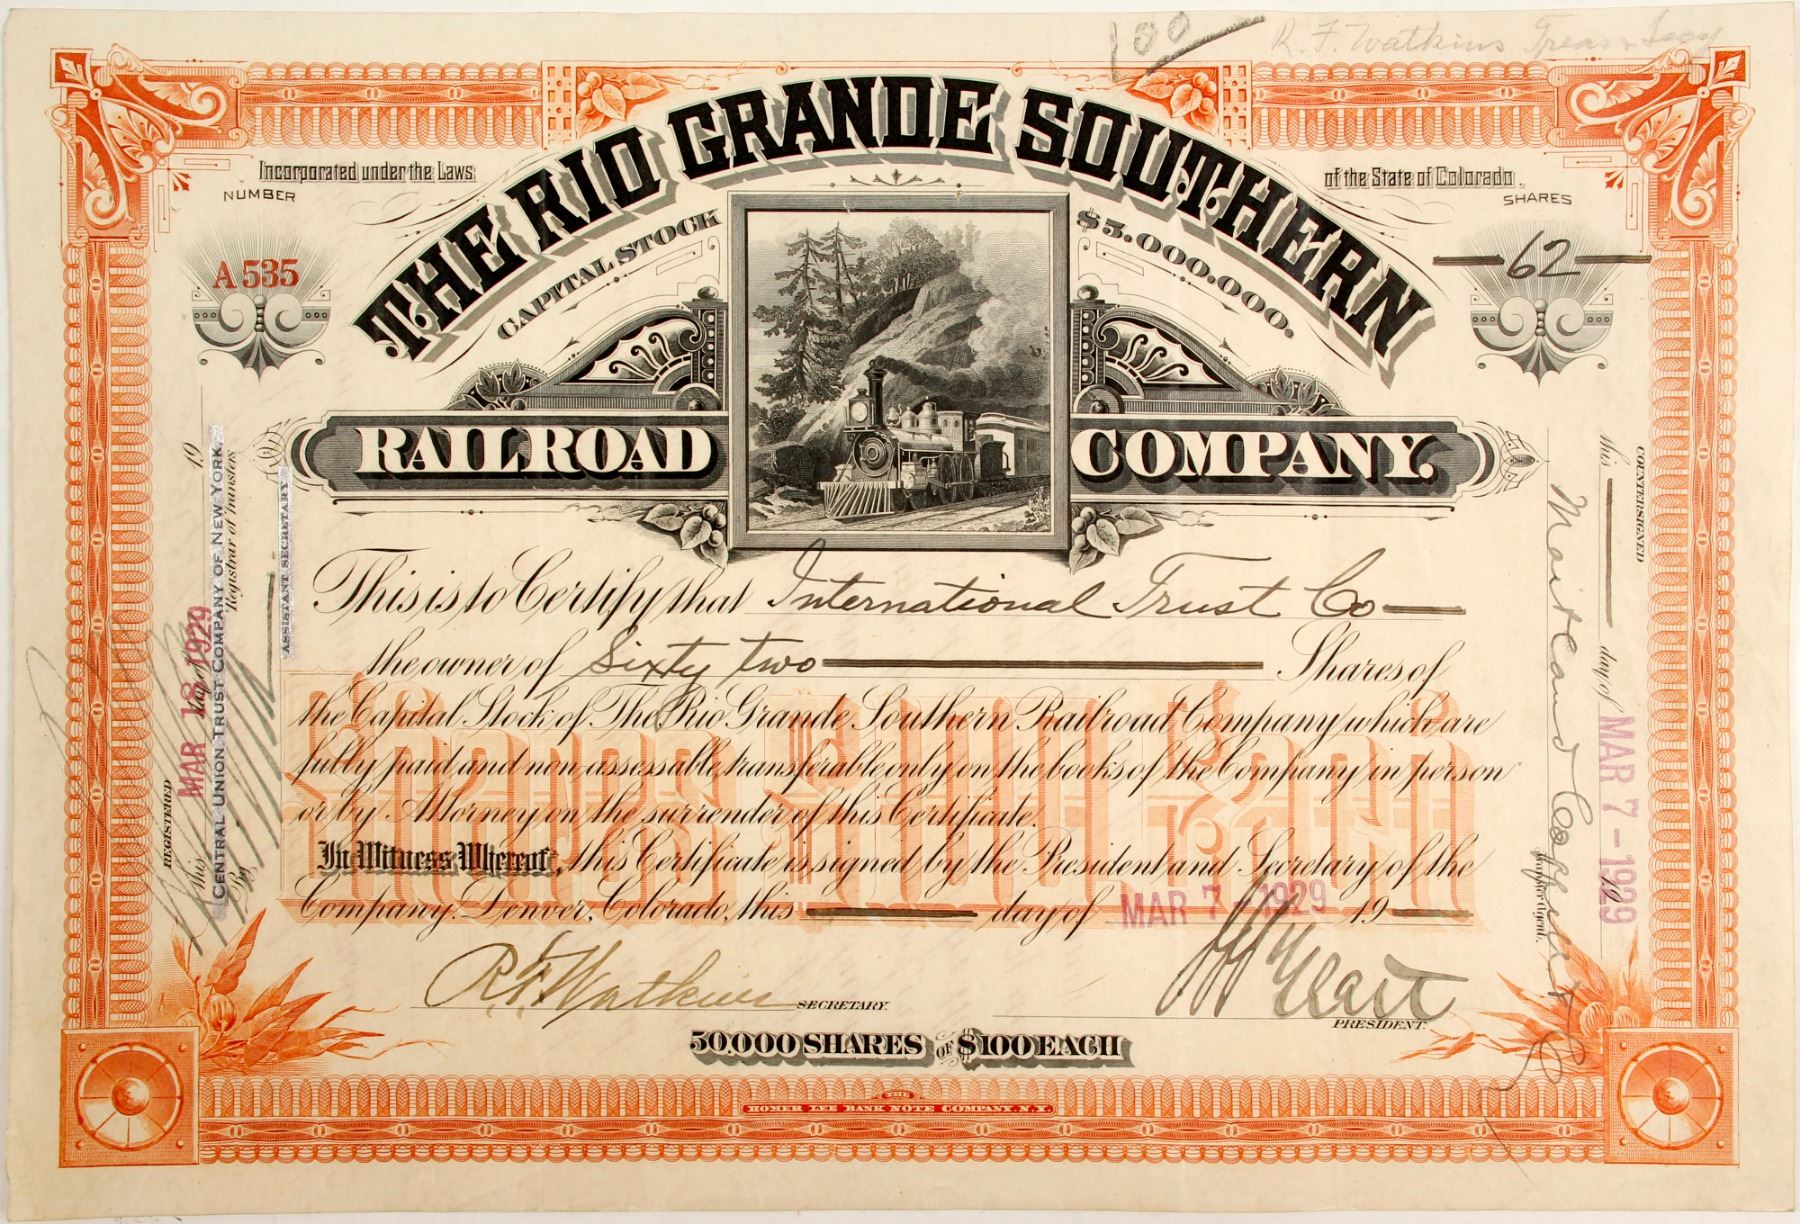 100
R. F. Watkins Treas & Secy
THE RIO GRANDE SOUTHERN
Incorporated under the Laws
of the State of Colorado
NUMBER
SHARES
A 535
62
CAPITAL STOCK
$5.000.000.
RAILROAD COMPANY.
This is to Certify that International Trust Co
the owner of Sixty two Shares of
the Capital Stock of The Rio Grande Southern Railroad Company which are
fully paid and non assessable, transferable only on the books of the Company in person
or by Attorney on the surrender of this Certificate.
In Witness Whereof, this Certificate is signed by the President and Secretary of the
Company. Denver, Colorado, this day of MAR 7 - 1929 19
R F Watkins SECRETARY.
PRESIDENT.
50.000 SHARES OF $100 EACH
THE
HOMER LEE BANK NOTE COMPANY. N.Y.
REGISTERED
This MAR 18 1929 day of 19
CENTRAL UNION TRUST COMPANY OF NEW YORK
Registrar of Transfers
By
ASSISTANT SECRETARY
COUNTERSIGNED
This day of MAR 7 - 1929 19
Maitland Coppell & Co
Transfer Agent.